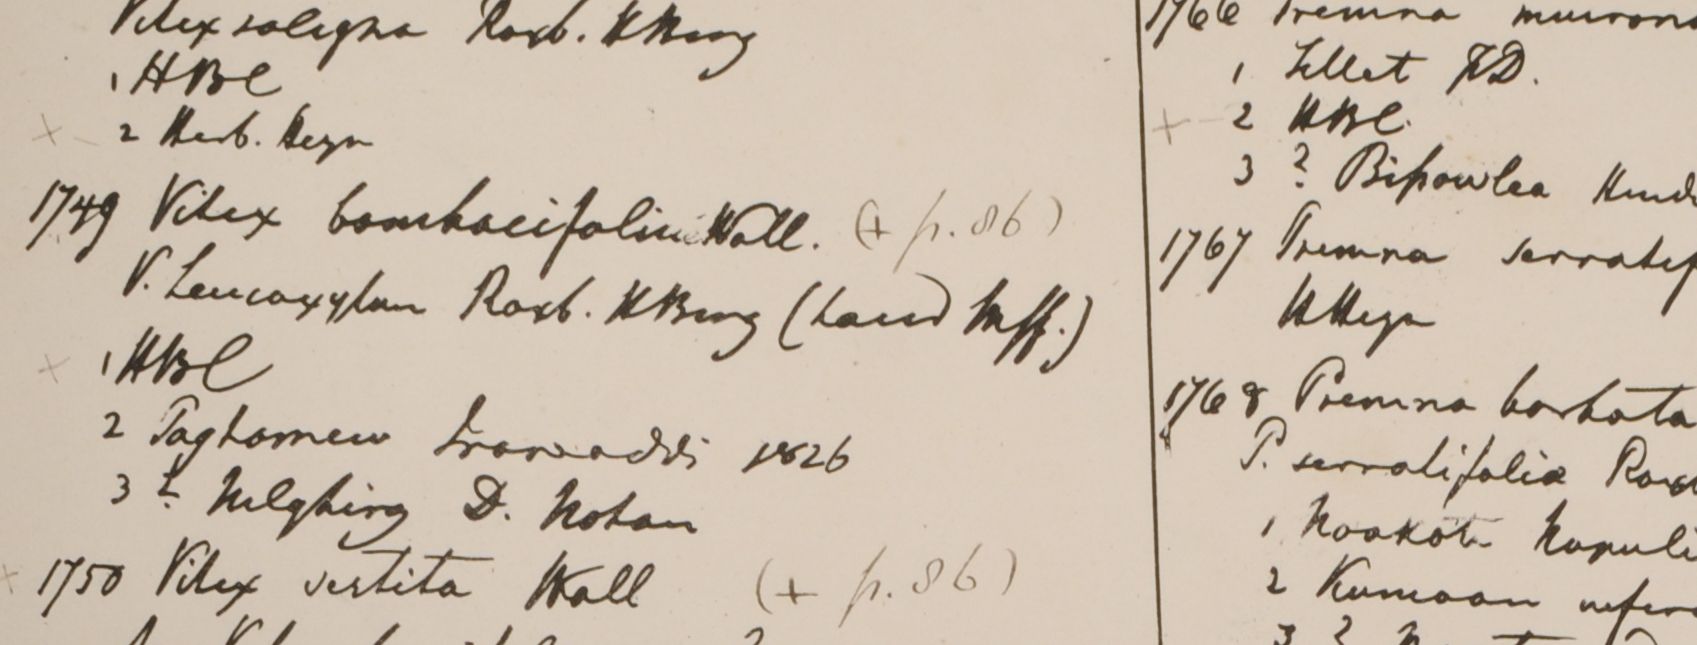 Vitex saligna Roxb. HBeng
1 HBC
+ 2 Herb. Heyn
1749 Vitex bombacifolia Wall. (+ p. 86)
V. Leucoxylon Roxb. HBeng (haud Linff.)
+ 1 HBC
2 Taghamew Irawaddi 1826
3 ? Nilghiry D. Nohan
+ 1750 Vitex vestita Wall (+ p. 86)
1766 Premna mucrona
1 Sillet FD.
+ 2 HBC.
3 ? Bipowlea Hind
1767 Premna serratif
HHeyn
1768 Premna barbata
P. serratifolia Rox
1 Noakote Napuli
2 Kumaon
3 ?